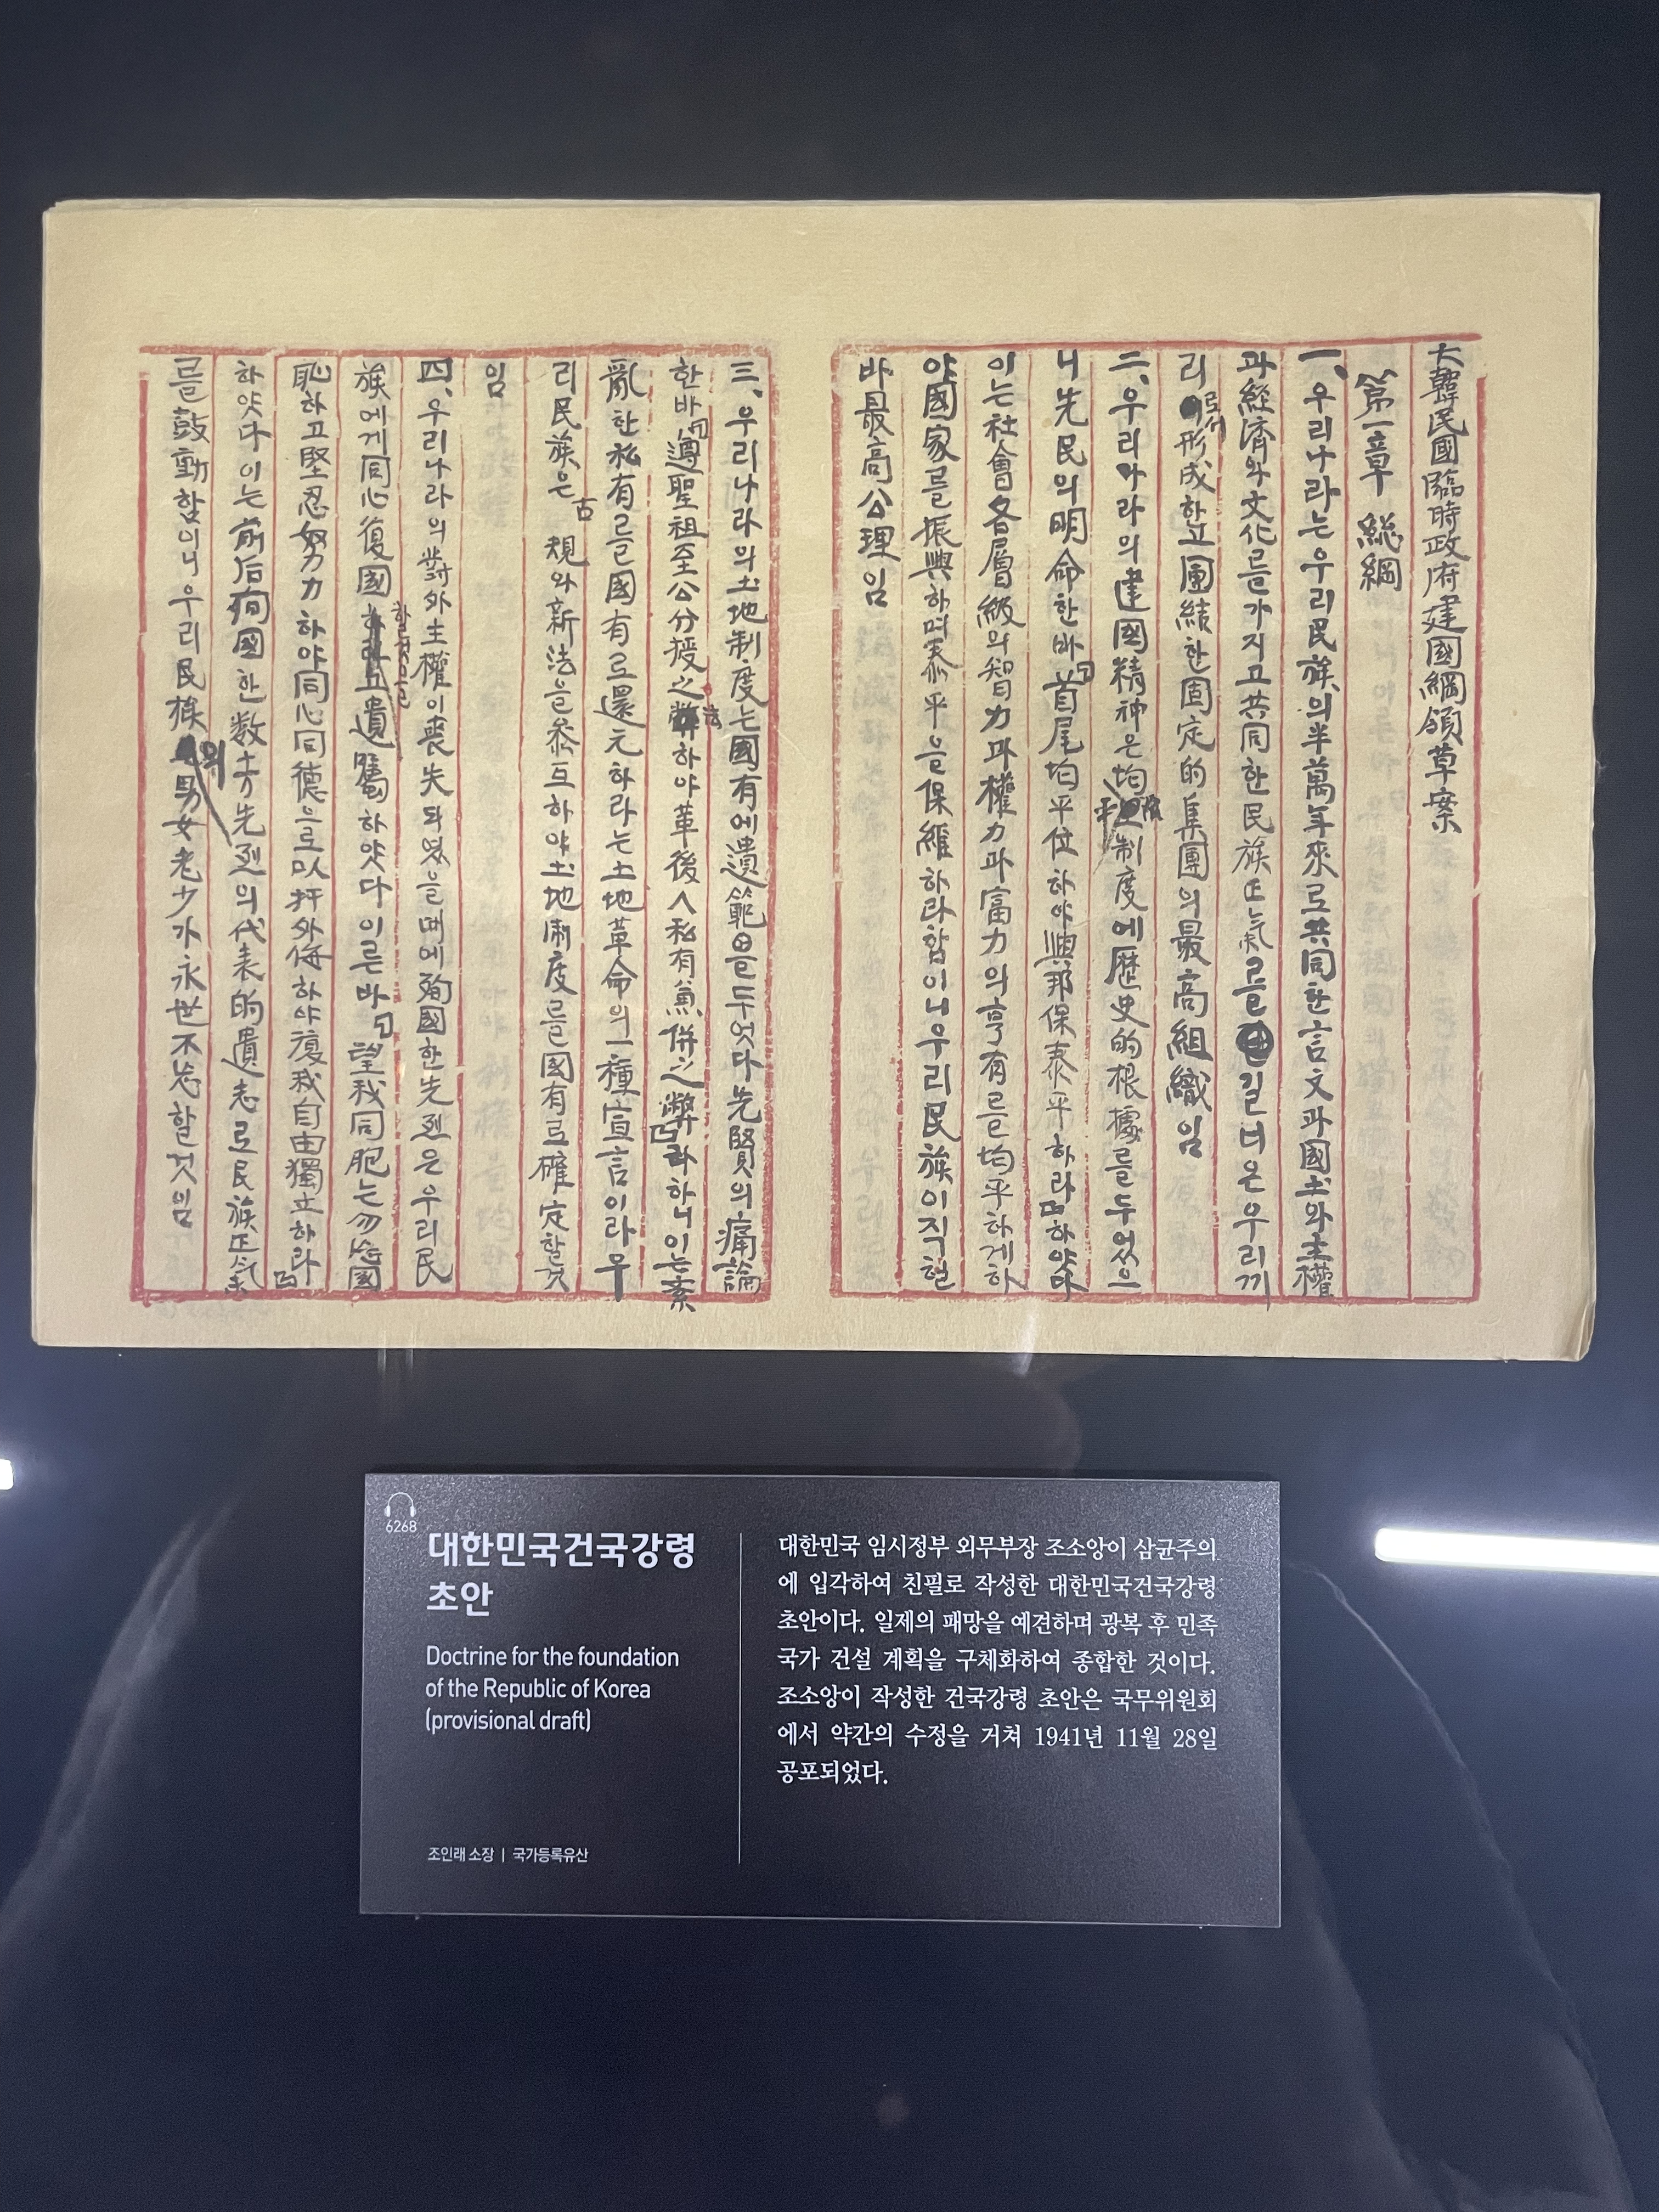 大韓民國臨時政府建國綱領草案
第一章 総綱
一、우리나라는우리民族의半萬年來로共同한言文과國土와主權
과経濟와文化를가지고共同한民族正氣를길너온우리끼
리로서形成하고團結한固定的集團의最高組織임
二、우리나라의建國精神은均平制度에歷史的根據를두었으
니先民의明命한바「首尾均平位하야興邦保泰平하라」하얏다
이는社會各層級의智力과權力과富力의享有를均平하게하
야國家를振興하며泰平을保維하라함이니우리民族이직힐
바最高公理임
三、우리나라의土地制度는國有에遺範을두엇다先賢의痛論
한바「遵聖祖至公分授之法하야革後人私有兼併之弊」라하니이는紊
亂한私有를國有로還元하라는土地革命의一種宣言이라우
리民族은古規와新法을參互하야土地制度를國有로確定할것
임
四、우리나라의對外主權이喪失되엿을때에殉國한先烈은우리民
族에게同心復國할것을遺囑하얏다이른바「望我同胞는勿忘國
恥하고堅忍努力하야同心同德으로以扞外侮하야復我自由獨立하라」
하얏다이는前后殉國한数十万先烈의代表的遺志로民族正气
를鼓動함이니우리民族의男女老少가永世不忘할것임
6268
대한민국건국강령
초안
Doctrine for the foundation
of the Republic of Korea
(provisional draft)
조인래 소장 | 국가등록유산
대한민국 임시정부 외무부장 조소앙이 삼균주의
에 입각하여 친필로 작성한 대한민국건국강령
초안이다. 일제의 패망을 예견하며 광복 후 민족
국가 건설 계획을 구체화하여 종합한 것이다.
조소앙이 작성한 건국강령 초안은 국무위원회
에서 약간의 수정을 거쳐 1941년 11월 28일
공포되었다.